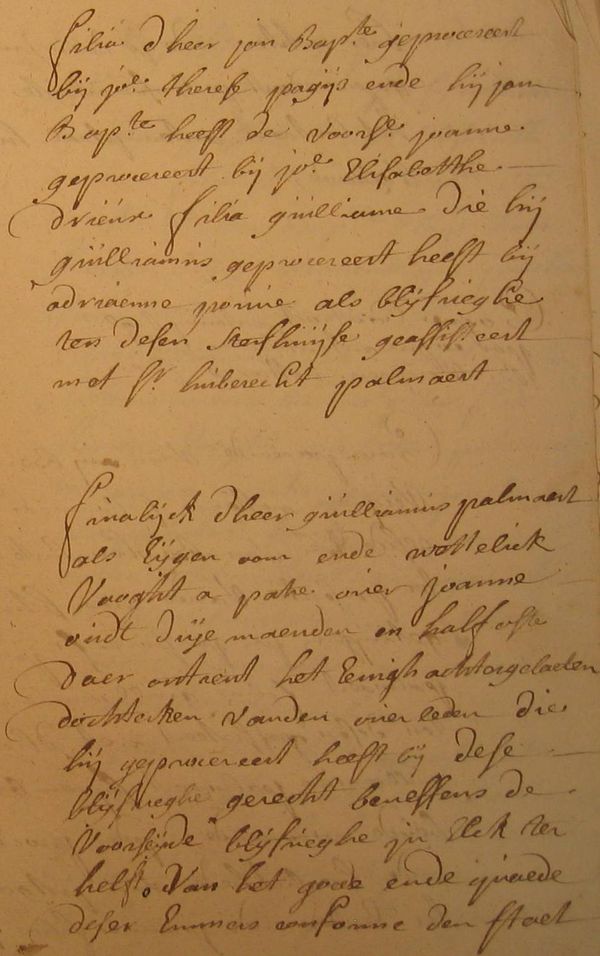 filia dheer jan Bap.te geprocreert
bij jo.e therese pagijs ende hij jan
Bap.te heeft de voors.e joanne
geprocreert bij jo.e Elisabethe
drieux filia guilliame die hij
guilliamus geprocreert heeft bij
adriaenne als blijfvieghe
ten desen sterfhuijse geassisteert
met S.r huberecht palmaert
finalijck dheer guilliamus palmaert
als Eijgen oom ende wettelick
Vooght a patre over joanne
oudt drije maenden en half ofte
daer ontrent het Eenigh achtergelaeten
dochterken vanden overleden die
hij geprocreert heeft bij dese
blijfvieghe gerecht beneffens de
Voorseijde blijfvieghe in Elck ter
helft. Van het goede ende quaede
deser Emmers conforme den staet